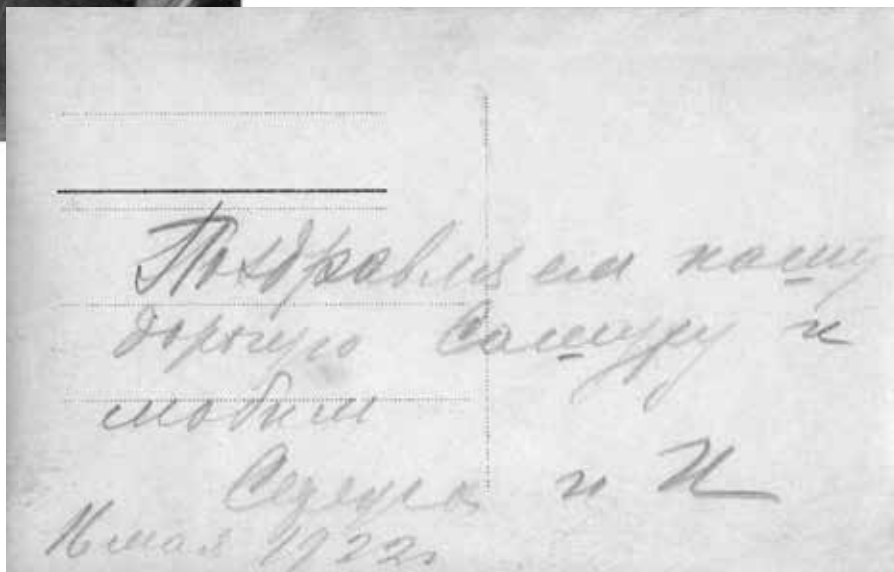 Поздравляем нашу
дорогую Сашуру и
любим
и И
16 мая 1922 г